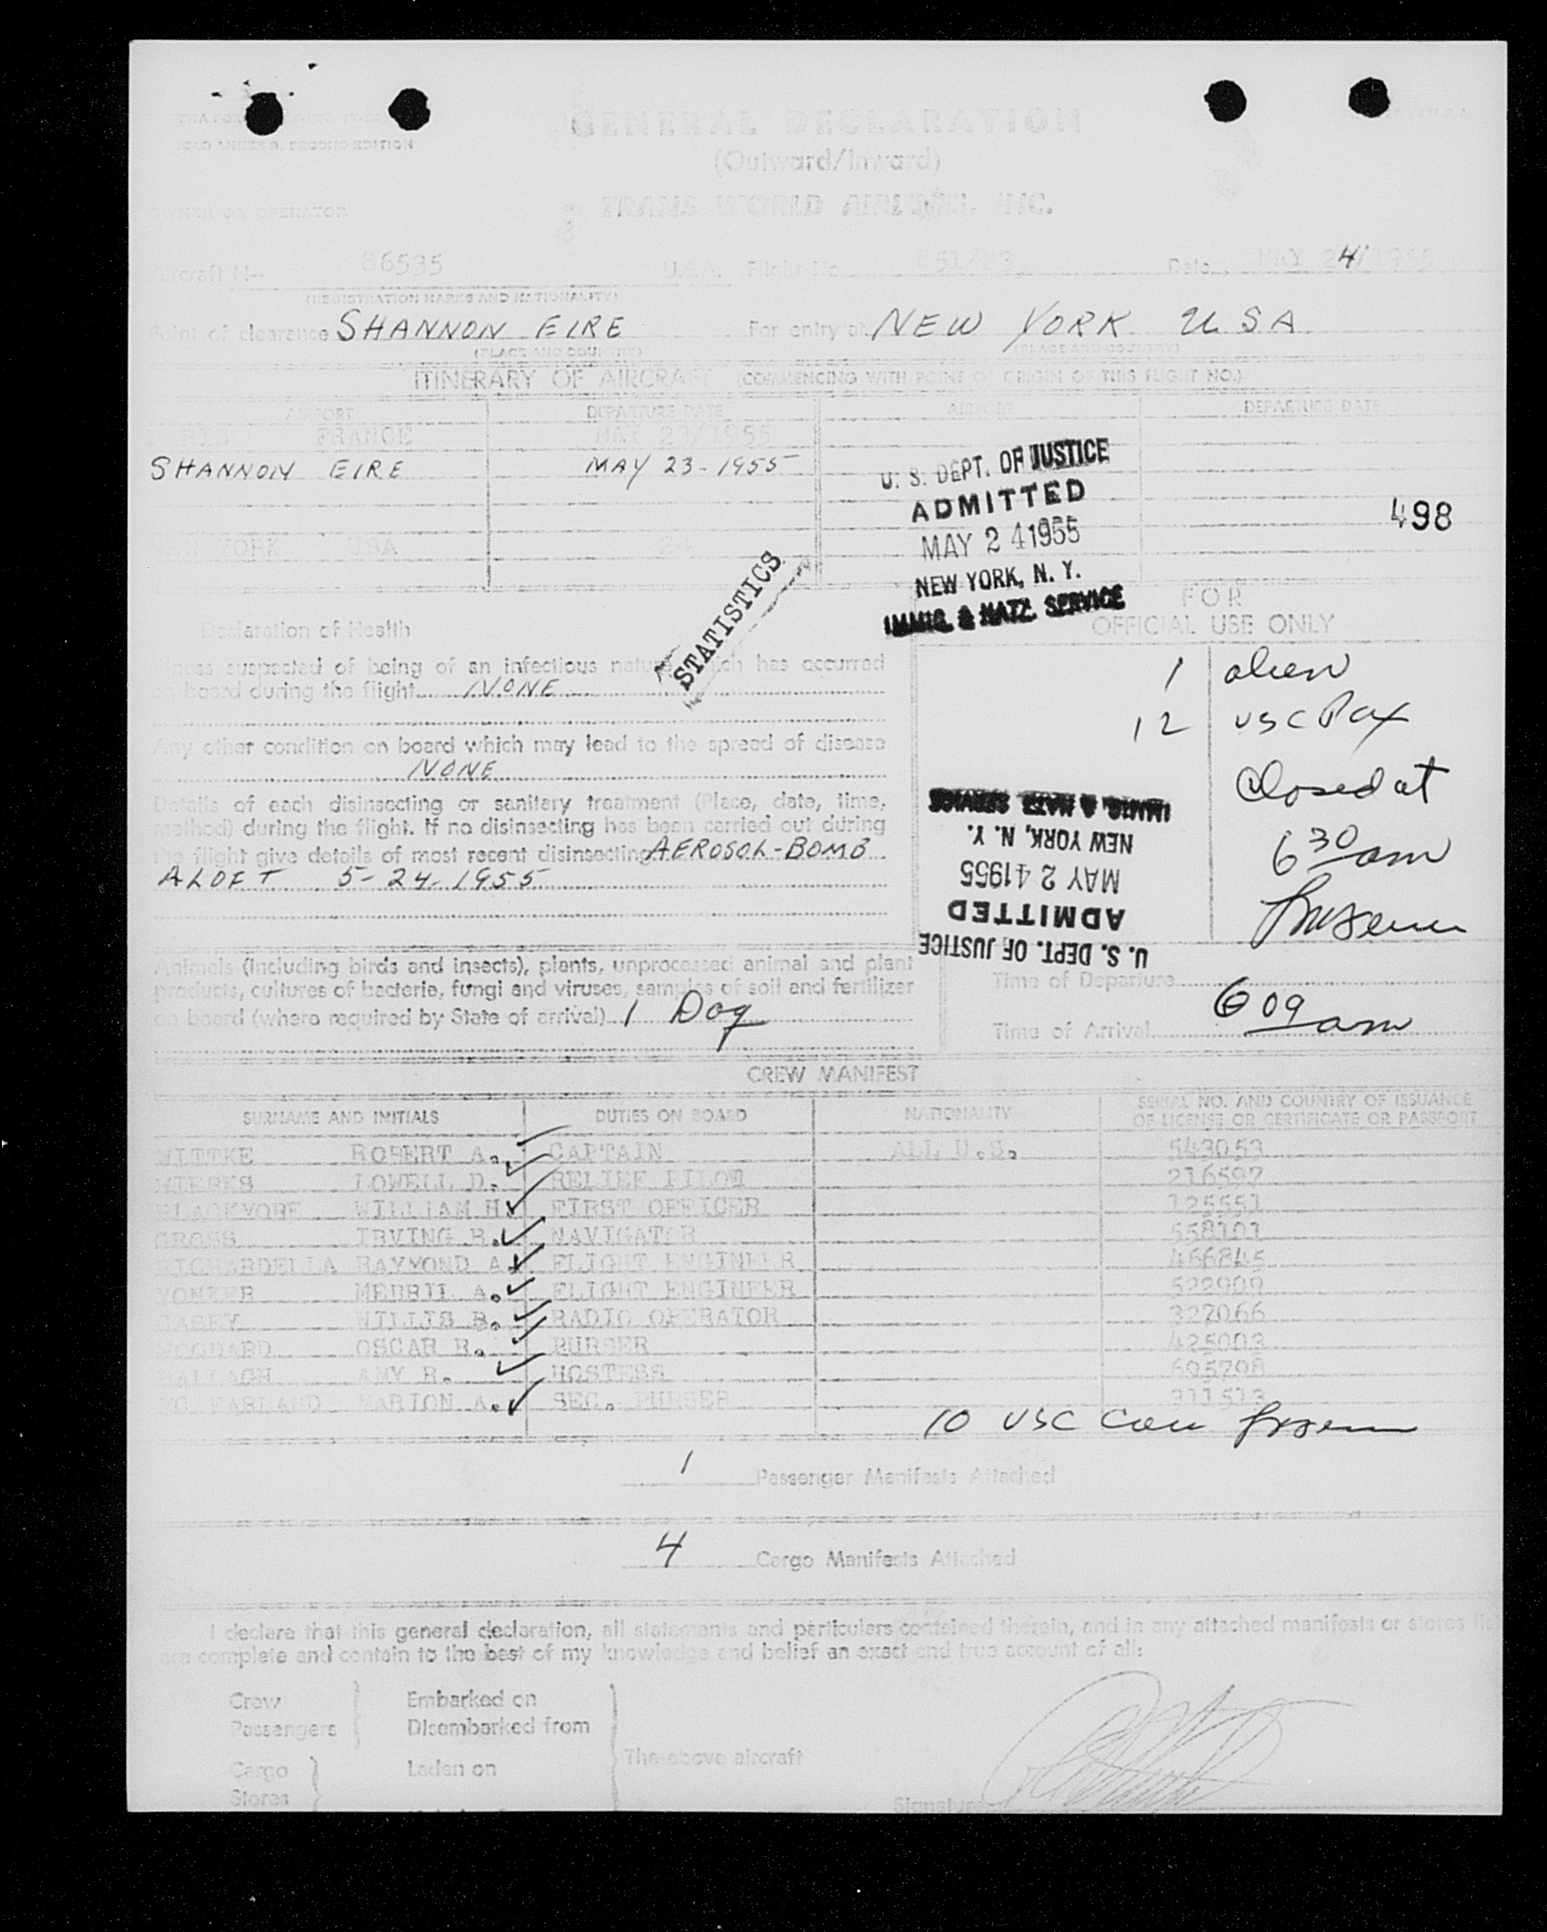 ICAO ANNEX 9, SECOND EDITION
GENERAL DECLARATION
(Outward/Inward)
OWNER OR OPERATOR
TRANS WORLD AIRLINES, INC.
Aircraft N-- 86535 U.S.A. Flight No. Date MAY 24/1955
(REGISTRATION MARKS AND NATIONALITY)
Point of clearance SHANNON EIRE For entry at NEW YORK USA
(PLACE AND COUNTRY) (PLACE AND COUNTRY)
ITINERARY OF AIRCRAFT (COMMENCING WITH POINT OF ORIGIN OF THIS FLIGHT NO.)
AIRPORT DEPARTURE DATE AIRPORT DEPARTURE DATE
PARIS FRANCE MAY 23/1955
SHANNON EIRE MAY 23-1955
U. S. DEPT. OF JUSTICE
ADMITTED
MAY 24 1955
NEW YORK, N. Y.
IMMIG. & NATZ. SERVICE
498
NEW YORK USA
STATISTICS
FOR
OFFICIAL USE ONLY
Declaration of Health
Illness suspected of being of an infectious nature which has occurred
on board during the flight NONE
Any other condition on board which may lead to the spread of disease
NONE
Details of each disinsecting or sanitary treatment (Place, date, time,
method) during the flight. If no disinsecting has been carried out during
the flight give details of most recent disinsecting AEROSOL-BOMB
ALOFT 5-24-1955
1 alien
12 USC Pax
Closed at
6 30 am
U. S. DEPT. OF JUSTICE
ADMITTED
MAY 24 1955
NEW YORK, N. Y.
IMMIG. & NATZ. SERVICE
Animals (including birds and insects), plants, unprocessed animal and plant
products, cultures of bacteria, fungi and viruses, samples of soil and fertilizer
on board (where required by State of arrival) 1 Dog
Time of Departure
Time of Arrival 6 09 am
CREW MANIFEST
SURNAME AND INITIALS DUTIES ON BOARD NATIONALITY SERIAL NO. AND COUNTRY OF ISSUANCE
OF LICENSE OR CERTIFICATE OR PASSPORT
WITTKE ROBERT A. CAPTAIN ALL U.S. 543053
LOWELL D. RELIEF PILOT 216597
BLACKMORE WILLIAM H. FIRST OFFICER 125551
GROSS IRVING R. NAVIGATOR 558101
RICHARDELLA RAYMOND A. FLIGHT ENGINEER 466845
YONKER MERRIL A. FLIGHT ENGINEER 522909
CASEY WILLIS B. RADIO OPERATOR 327066
WOODARD OSCAR R. PURSER 425003
HALLAGH AMY R. HOSTESS 695798
MC FARLAND MARION A. SEC. PURSER 311513
10 USC Crew
1 Passenger Manifests Attached
4 Cargo Manifests Attached
I declare that this general declaration, all statements and particulars contained therein, and in any attached manifests or stores list
are complete and contain to the best of my knowledge and belief an exact and true account of all:
Crew Embarked on
Passengers Disembarked from
The above aircraft
Cargo Laden on
Stores
Signature